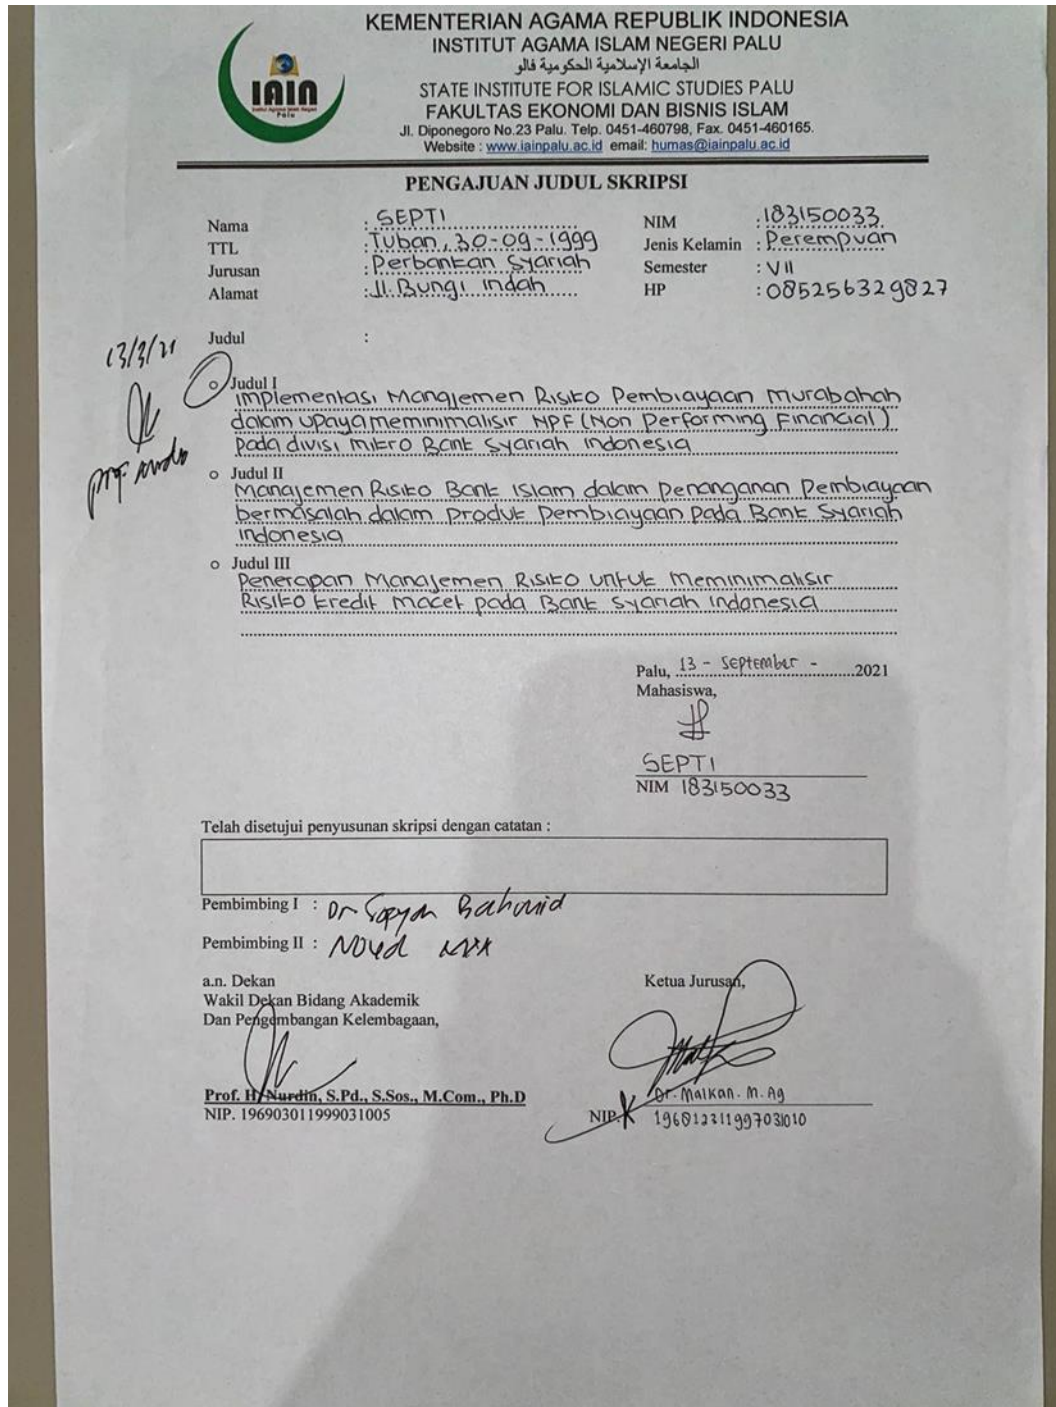 KEMENTERIAN AGAMA REPUBLIK INDONESIA
INSTITUT AGAMA ISLAM NEGERI PALU
الجامعة الإسلامية الحكومية فالو
STATE INSTITUTE FOR ISLAMIC STUDIES PALU
FAKULTAS EKONOMI DAN BISNIS ISLAM
Jl. Diponegoro No.23 Palu. Telp. 0451-460798, Fax. 0451-460165.
Website : www.iainpalu.ac.id email: humas@iainpalu.ac.id
IAIN
Palu
PENGAJUAN JUDUL SKRIPSI
Nama : SEPTI NIM : 183150033
TTL : Tuban, 30-09-1999 Jenis Kelamin : Perempuan
Jurusan : Perbankan Syariah Semester : VII
Alamat : Jl. Bungi indah HP : 085256329827
Judul :
Judul I
implementasi Manajemen Risiko Pembiayaan Murabahah
dalam upaya meminimalisir NPF (Non Performing Financial)
pada divisi mikro Bank Syariah Indonesia
Judul II
Manajemen Risiko Bank Islam dalam Penanganan Pembiayaan
bermasalah dalam produk pembiayaan pada Bank Syariah
indonesia
Judul III
Penerapan Manajemen Risiko untuk Meminimalisir
Risiko kredit macet pada Bank Syariah indonesia
Palu, 13 - September - 2021
Mahasiswa,
SEPTI
NIM 183150033
Telah disetujui penyusunan skripsi dengan catatan :
Pembimbing I : Dr
Pembimbing II :
a.n. Dekan Ketua Jurusan,
Wakil Dekan Bidang Akademik
Dan Pengembangan Kelembagaan,
Prof. H. Nurdin, S.Pd., S.Sos., M.Com., Ph.D Dr. Malkan. M. Ag
NIP. 196903011999031005 NIP. 196812311997031010